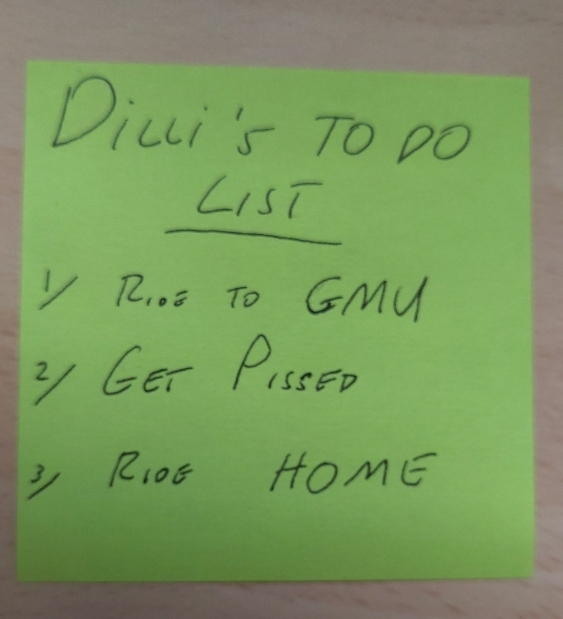 Dilli's TO DO
LIST
1/ RIDE TO GMU
2/ GET PISSED
3/ RIDE HOME